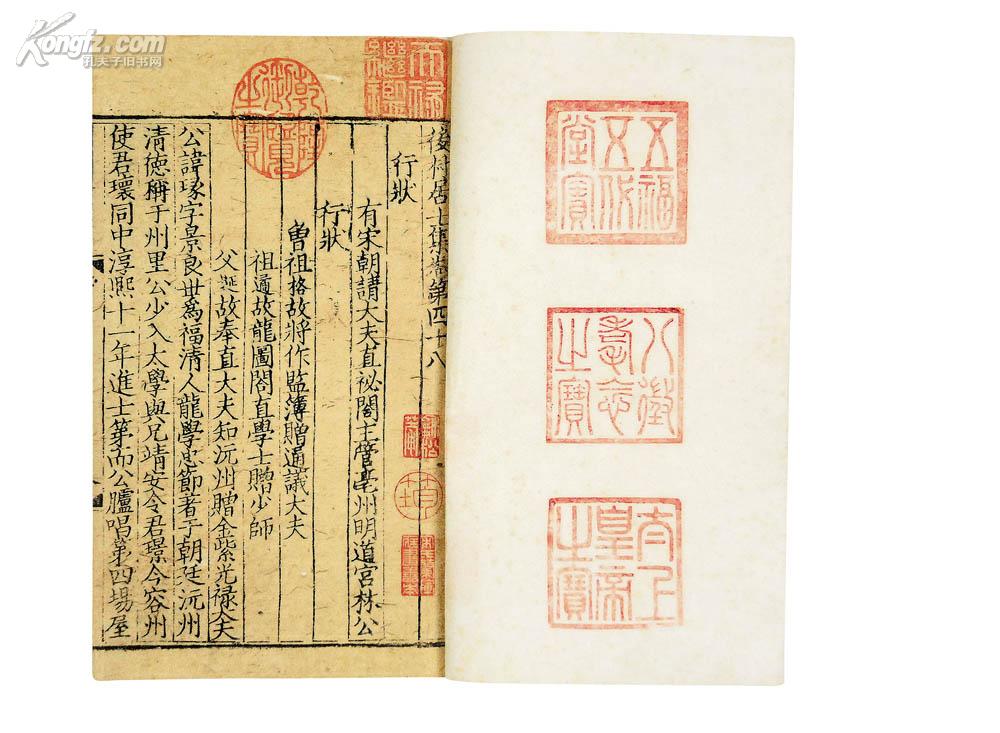 Kongfz.com
孔夫子旧书网
五福
五代
堂寳
八徵
耄念
之寳
太上
皇帝
之寳
天祿
繼鑑
乾隆
御覽
之寳
後村居士集卷第四十八
行狀
有宋朝請大夫直祕閣主管亳州明道宮林公
行狀
曾祖格故將作監簿贈通議大夫
祖遹故龍圖閣直學士贈少師
父埏故奉直大夫知沅州贈金紫光禄大夫
公諱瑑字景良丗爲福清人龍學忠節著于朝廷沅州
清德稱于州里公少入太學與兄靖安令君璟今容州
使君瓌同中淳熈十一年進士第而公臚唱第四場屋